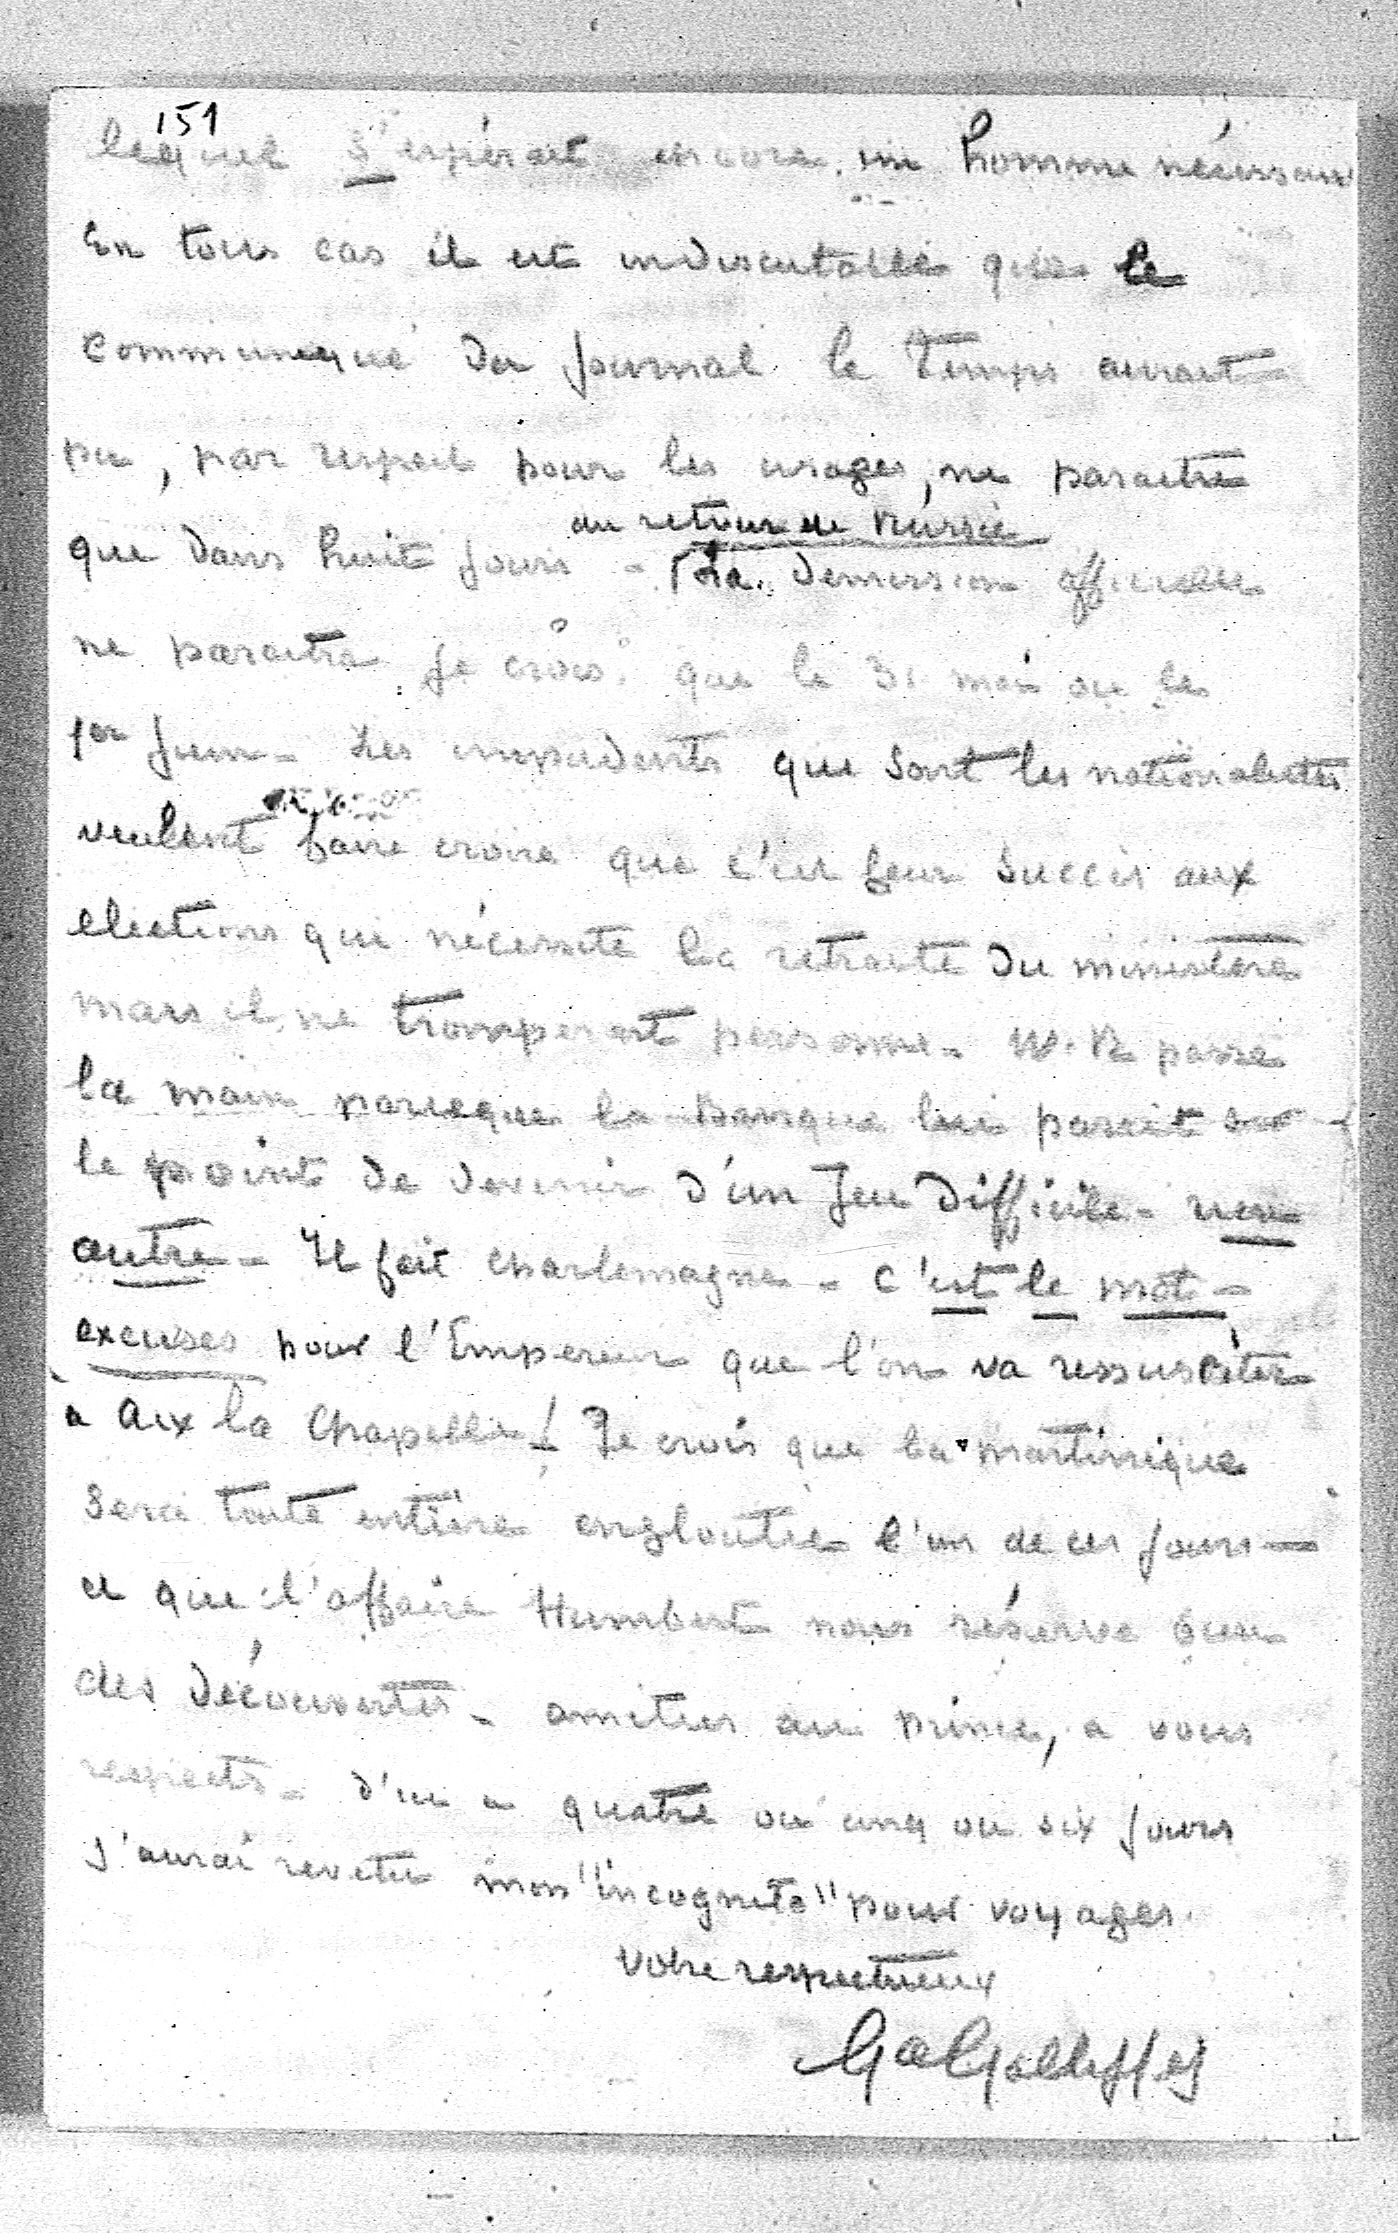 151
lequel s'espérait encore un homme nécessaire
En tous cas il est indiscutable que le
communiqué du journal le Temps aurait
pu, par respect pour les usages, ne paraitre
au retour de Russie
que dans huit jours - La demission officielle
ne paraitra je crois que le 31 mai ou le
1er Juin - Les impudents que sont les nationalistes
veulent faire croire que c'est leur succès aux
elections qui nécessite la retraite du ministère
mais ils ne tromperont personne - W. R passe
la main parceque la Banque lui parait sur
le point de devenir d'un Jeu difficile - rien
autre - Il fait Charlemagne - c'est le mot -
excuses pour l'Empereur que l'on va ressusciter
à Aix la Chapelle ! Je crois que la martinique
sera toute entière engloutie l'un de ces jours -
et que l'affaire Humbert nous réserve bien
des découvertes - amitiés au prince, a vous
respects - d'ici a quatre ou cinq ou six jours
j'aurai revetu mon "incognito" pour voyager.
Votre respectueux
Ga Galliffet